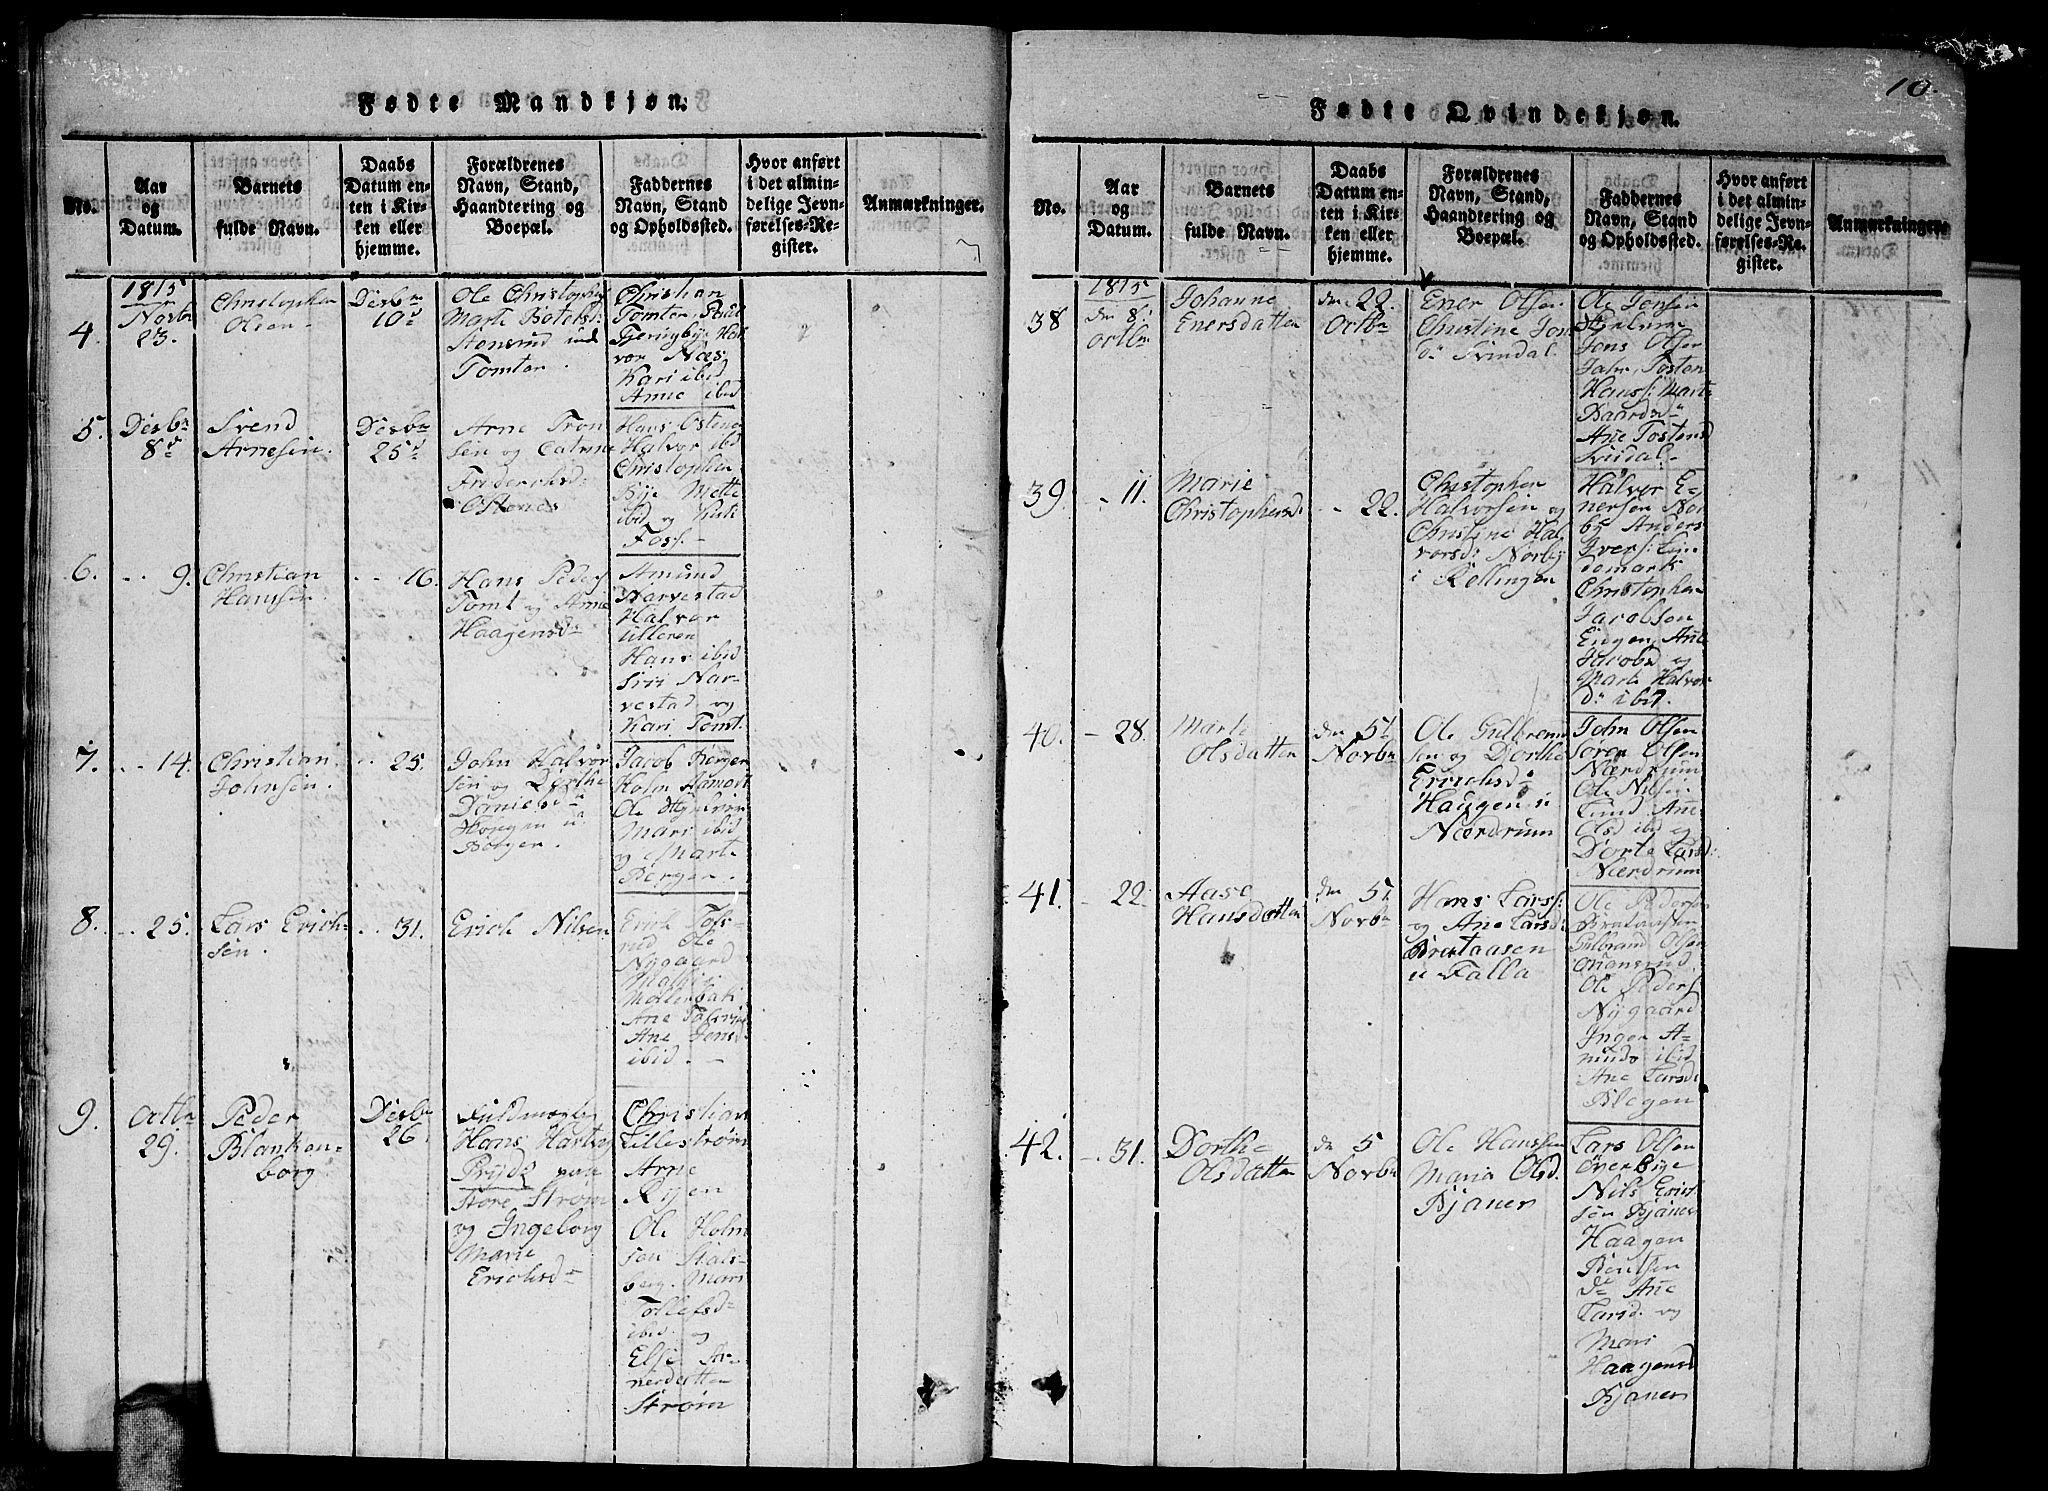 Fødte Mandkjøn.
No.
Aar
og
Datum.
Barnets
fulde Navn.
Daabs
Datum en-
ten i Kir-
ken eller
hjemme.
Forældrenes
Navn, Stand,
Haandtering og
Boepæl.
Faddernes
Navn, Stand
og Opholdssted.
Hvor anført
i det almin-
delige Jevn-
førelses-Re-
gister.
Anmærkninger.
4.
1815
Novbr
23.
Christopher
Olsen
Desbr
10d
Ole Christophs
Marte
Stensrud und
Tomter.
Christian
Tomter
vor Næs
Kari ibid
Anne ibid
5.
Desbr
8d
Svend
Arnesen.
Desbr
25d
Arne Tron
sen og Catrine
Friderichsd
Ostenes
Hans Ostenes
Halvor ibd
Christopher
Bye Mette
ibid og
Foss.
6.
9.
Christian
Hansen.
16.
Hans Peders
Tomt og Anne
Haagensd
Amund
Narvestad
Halvor
Ulleren
Hans ibid
Siri Nar-
vestad og
Kari Tomt.
7.
14.
Christian
Johnsen.
25.
John Halvor
sen og Dorthe
Danielsd
Borgen u
Borgen.
Jacob
Holm
Ole
Mari ibid
og Marte
Bergen.
8.
25.
Lars Erich-
sen.
31.
Erich Nilsen
Erich
Ole
Nygaard
Ane
Ane Jonsd
ibid.
9.
Octbr
29.
Peder
Blanken-
borg
Desbr
26.
Fuldmægtig
Hans Hartvig
Prydz paa
Store Strøm
og Ingeborg
Marie
Erichsd
Christian
Lillestrøm
Arne
Ryen
Ole Holm
sen Stals-
berg. Mari
Tollefsd
ibid. og
Else Ar-
nesdatter
Strøm
10.
Fødte Qvindekjøn.
No.
Aar
og
Datum.
Barnets
fulde Navn.
Daabs
Datum en-
ten i Kir-
ken eller
hjemme.
Forældrenes
Navn, Stand,
Haandtering og
Boepæl.
Faddernes
Navn, Stand
og Opholdssted.
Hvor anført
i det almin-
delige Jevn-
førelses-Re-
gister.
Anmærkninger.
38
1815
den 8
Octbr
Johanne
Enersdatter
den 22.
Octbr
Ener Olsen
Christine Jons
d: Svindal.
Ole Jensen
Jons Olsen
Tosten
Hanss: Marte
Baardsd
Ane Tostensd
Svindal.
39.
11.
Marie
Christophersd:
22.
Christopher
Halvorsen og
Christine Hal
vorsd: Norby
i Rellingen
Halvor E-
nersen Nor
by Anders
Ivers: Lin
demark
Christopher
Jacobsen
Engen, Ane
Jacobsd og
Marte Halvor
d: ibid.
40.
28.
Marte
Olsdatter
den 5t
Novbr
Ole Gulbrand
sen og Dorthe
Erichsd:
Haugen u
Nærdrum
John Olsen
Søren Olsen
Nærdrum
Ole Nilsen
Lund Ane
Olsd ibid og
Dorte Larsd:
Nærdrum
41.
22.
Aase
Hansdatter
den 5t
Novbr
Hans Larss:
og Ane Larsd:
Brataasen
u Falla
Ole Pedersen
Brataasen
Gulbrand Olsen
Ole Peders
Nygaard
Inger A-
munds ibid
Ane Larsd
Blegen
42.
31.
Dorthe
Olsdatter
d 5
Novbr
Ole Hanssen
Maria Olsd.
Bjaner
Lars Olsen
Overbye
Nils Erich
sen Bjaner
Haagen
Bentsen
d Ane
Larsd. og
Mari
Haagensd
Bjaner